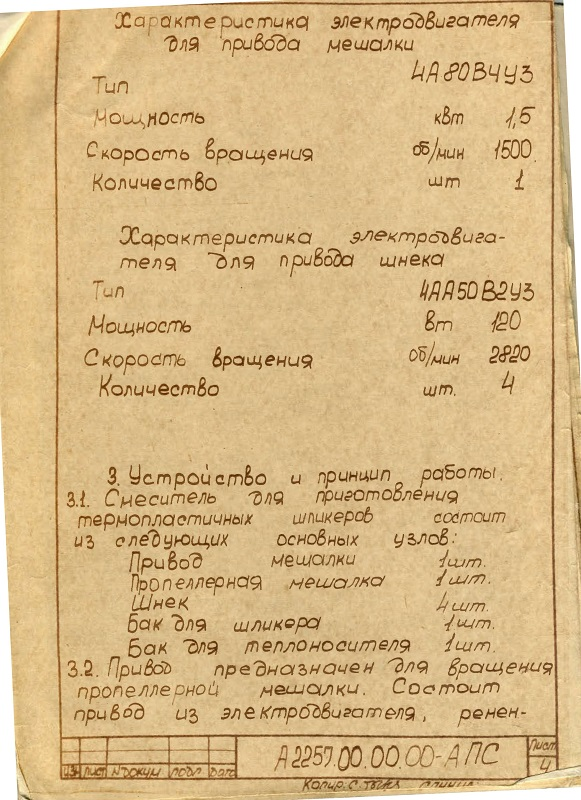 Характеристика электродвигателя
для привода мешалки
Тип 4А80В4У3
Мощность квт 1,5
Скорость вращения об/мин 1500
Количество шт 1
Характеристика электродвига-
теля для привода шнека
Тип 4АА50В2У3
Мощность вт 120
Скорость вращения об/мин 2820
Количество шт. 4
3. Устройство и принцип работы.
3.1. Смеситель для приготовления
термопластичных шликеров состоит
из следующих основных узлов:
Привод мешалки 1шт.
Пропеллерная мешалка 1шт.
Шнек 4шт.
Бак для шликера 1шт.
Бак для теплоносителя 1шт.
3.2. Привод предназначен для вращения
пропеллерной мешалки. Состоит
привод из электродвигателя, ремен-
А2257.00.00.00-АПС
Лист
4
Изм Лист № докум подп. дата
Копир.